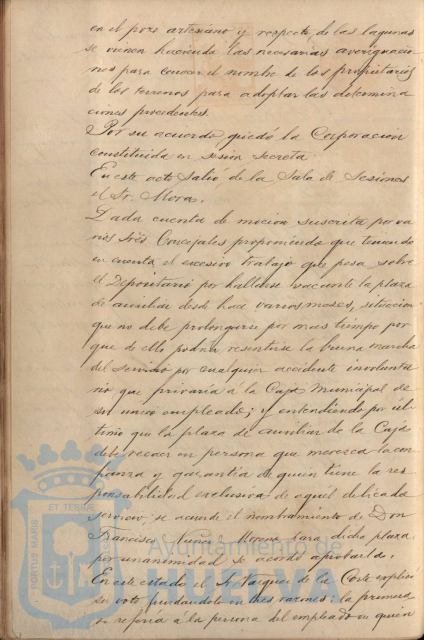 en el pozo artesiano y respecto de las lagunas
se vienen haciendo las necesarias averiguacio
nes para conocer el nombre de los propietarios
de los terrenos para adoptar las determina
ciones procedentes.
Por su acuerdo, quedó la Corporacion
constituida en sesion secreta
En este acto salió de la Sala de Sesiones
el Sr. Mora.
Dada cuenta de mocion suscrita por va
rios Sres Concejales proponiendo que teniendo
en cuenta el excesivo trabajo que pesa sobre
el Depositario por hallarse vacante la plaza
de auxiliar desde hace varios meses, situacion
que no debe prolongarse por mas tiempo por
que de ello podria resentirse la buena marcha
del servicio por cualquier accidente involunta
rio que privaria á la Caja Municipal de
su unico empleado; y entendiendo por úl
timo que la plaza de auxiliar de la Caja
debe recaer en persona que merezca la con
fianza y garantía de quien tiene la res
ponsabilidad exclusiva de aquel delicado
servicio, se acuerde el nombramiento de Don
Francisco Nuñez Moreno para dicha plaza,
por unanimidad se acordó aprobarla.
En este estado el Sr Vazquez de la Corte explicó
su voto fundandolo en tres razones: la primera
se referia a la persona del empleado en quien
PORTUS MARIS
ET TERRAE
Ayuntamiento de
HUELVA